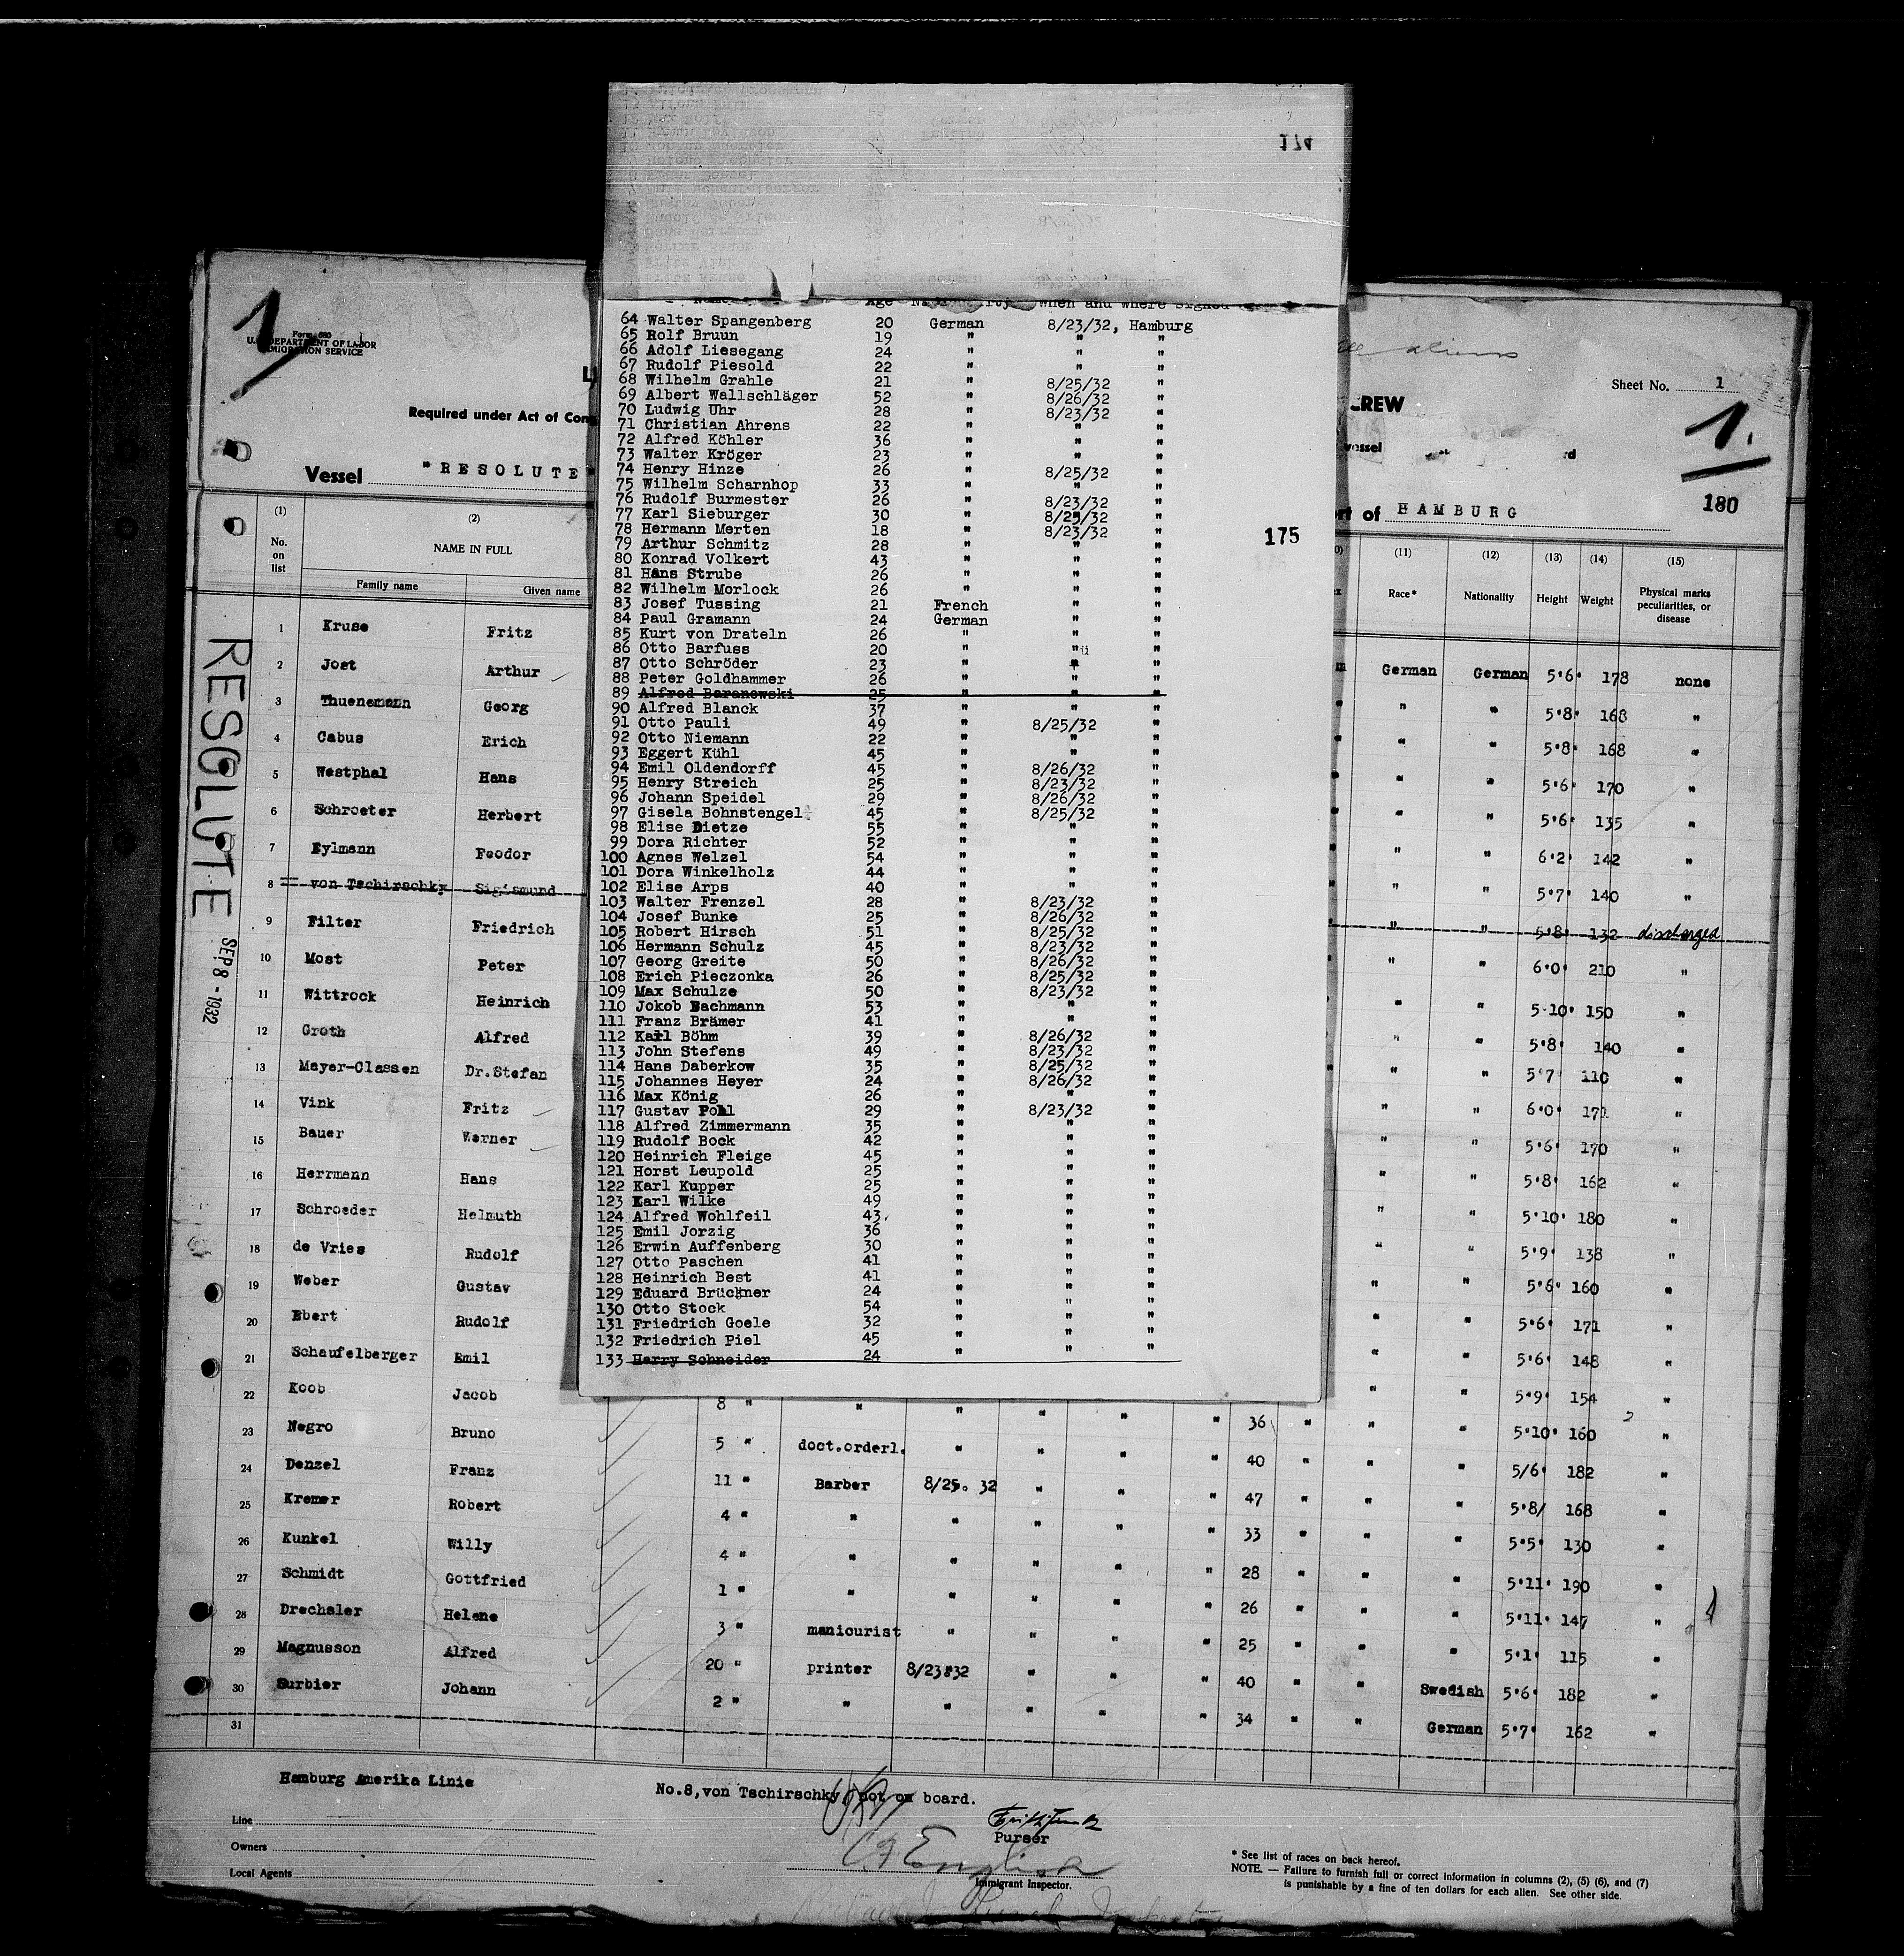 174
1.
Form 680
U.S. DEPARTMENT OF LABOR
IMMIGRATION SERVICE
aliens
Sheet No. 1
CREW
Required under Act of Con
vessel
1.
Vessel "RESOLUTE"
of HAMBURG
180
175
RESOLUTE
SEP 8 - 1932
Age When and where signed
64 Walter Spangenberg 20 German 8/23/32, Hamburg
65 Rolf Bruun 19 " " "
66 Adolf Liesegang 24 " " "
67 Rudolf Piesold 22 " " "
68 Wilhelm Grahle 21 " 8/25/32 "
69 Albert Wallschläger 52 " 8/26/32 "
70 Ludwig Uhr 28 " 8/23/32 "
71 Christian Ahrens 22 " " "
72 Alfred Köhler 36 " " "
73 Walter Kröger 23 " " "
74 Henry Hinze 26 " 8/25/32 "
75 Wilhelm Scharnhop 33 " " "
76 Rudolf Burmester 26 " 8/23/32 "
77 Karl Sieburger 30 " 8/25/32 "
78 Hermann Merten 18 " 8/23/32 "
79 Arthur Schmitz 28 " " "
80 Konrad Volkert 43 " " "
81 Hans Strube 26 " " "
82 Wilhelm Morlock 26 " " "
83 Josef Tussing 21 French " "
84 Paul Gramann 24 German " "
85 Kurt von Drateln 26 " " "
86 Otto Barfuss 20 " " "
87 Otto Schröder 23 " " "
88 Peter Goldhammer 26 " " "
89 Alfred Baranowski 25 " " "
90 Alfred Blanck 37 " " "
91 Otto Pauli 49 " 8/25/32 "
92 Otto Niemann 22 " " "
93 Eggert Kühl 45 " " "
94 Emil Oldendorff 45 " 8/26/32 "
95 Henry Streich 25 " 8/23/32 "
96 Johann Speidel 29 " 8/26/32 "
97 Gisela Bohnstengel 45 " 8/25/32 "
98 Elise Dietze 55 " " "
99 Dora Richter 52 " " "
100 Agnes Welzel 54 " " "
101 Dora Winkelholz 44 " " "
102 Elise Arps 40 " " "
103 Walter Frenzel 28 " 8/23/32 "
104 Josef Bunke 25 " 8/26/32 "
105 Robert Hirsch 51 " 8/25/32 "
106 Hermann Schulz 45 " 8/23/32 "
107 Georg Greite 50 " 8/26/32 "
108 Erich Pieczonka 26 " 8/25/32 "
109 Max Schulze 50 " 8/23/32 "
110 Jokob Bachmann 53 " " "
111 Franz Brämer 41 " " "
112 Karl Böhm 39 " 8/26/32 "
113 John Stefens 49 " 8/23/32 "
114 Hans Daberkow 35 " 8/25/32 "
115 Johannes Heyer 24 " 8/26/32 "
116 Max König 26 " " "
117 Gustav Pohl 29 " 8/23/32 "
118 Alfred Zimmermann 35 " " "
119 Rudolf Bock 42 " " "
120 Heinrich Fleige 45 " " "
121 Horst Leupold 25 " " "
122 Karl Kupper 25 " " "
123 Karl Wilke 49 " " "
124 Alfred Wohlfeil 43 " " "
125 Emil Jorzig 36 " " "
126 Erwin Auffenberg 30 " " "
127 Otto Paschen 41 " " "
128 Heinrich Best 41 " " "
129 Eduard Brückner 24 " " "
130 Otto Stock 54 " " "
131 Friedrich Goele 32 " " "
132 Friedrich Piel 45 " " "
133 Harry Schneider 24
(1) (2) (11) (12) (13) (14) (15)
No. on list NAME IN FULL Race* Nationality Height Weight Physical marks peculiarities, or disease
Family name Given name
1 Kruse Fritz German German 5'6' 178 none
2 Jost Arthur " " 5'8' 168 "
3 Thuenemann Georg " " 5'8' 168 "
4 Cabus Erich " " 5'6' 170 "
5 Westphal Hans " " 5'6' 135 "
6 Schroeter Herbert " " 6'2' 142 "
7 Eylmann Feodor " " 5'7' 140 "
8 von Tschirschky Sigismund " " 5'8' 132 discharged
9 Filter Friedrich " " 6'0' 210 "
10 Most Peter " " 5'10' 150 "
11 Wittrock Heinrich " " 5'8' 140 "
12 Groth Alfred " " 5'7' 110 "
13 Mayer-Classen Dr.Stefan " " 6'0' 171 "
14 Vink Fritz " " 5'6' 170 "
15 Bauer Werner " " 5'8' 162 "
16 Herrmann Hans " " 5'10' 180 "
17 Schroeder Helmuth " " 5'9' 138 "
18 de Vries Rudolf " " 5'6' 160 "
19 Weber Gustav " " 5'6' 171 "
20 Ebert Rudolf " " 5'6' 148 "
21 Schaufelberger Emil " " 5'9' 154 "
22 Koob Jacob 8 " " " " " " 36 " " " 5'10' 160 "
23 Negro Bruno 5 " doct.orderl. " " " " 40 " " " 5/6' 182 "
24 Denzel Franz 11 " Barber 8/25. 32 " " " 47 " " " 5'8/ 168 "
25 Kremer Robert 4 " " " " " " 33 " " " 5'5' 130 "
26 Kunkel Willy 4 " " " " " " 28 " " " 5'11' 190 "
27 Schmidt Gottfried 1 " " " " " " 26 " " " 5'11' 147 "
28 Drechsler Helene 3 " manicurist " " " " 25 " " " 5'1' 115 "
29 Magnusson Alfred 20 " printer 8/23"32 " " " 40 " " Swedish 5'6' 182 "
30 Surbier Johann 2 " " " " " " 34 " " German 5'7' 162 "
31
Hamburg Amerika Linie
No.8,von Tschirschky, not on board.
Line
Purser
Owners
Local Agents
Immigrant Inspector.
* See list of races on back hereof.
NOTE. — Failure to furnish full or correct information in columns (2), (5) (6), and (7)
is punishable by a fine of ten dollars for each alien. See other side.